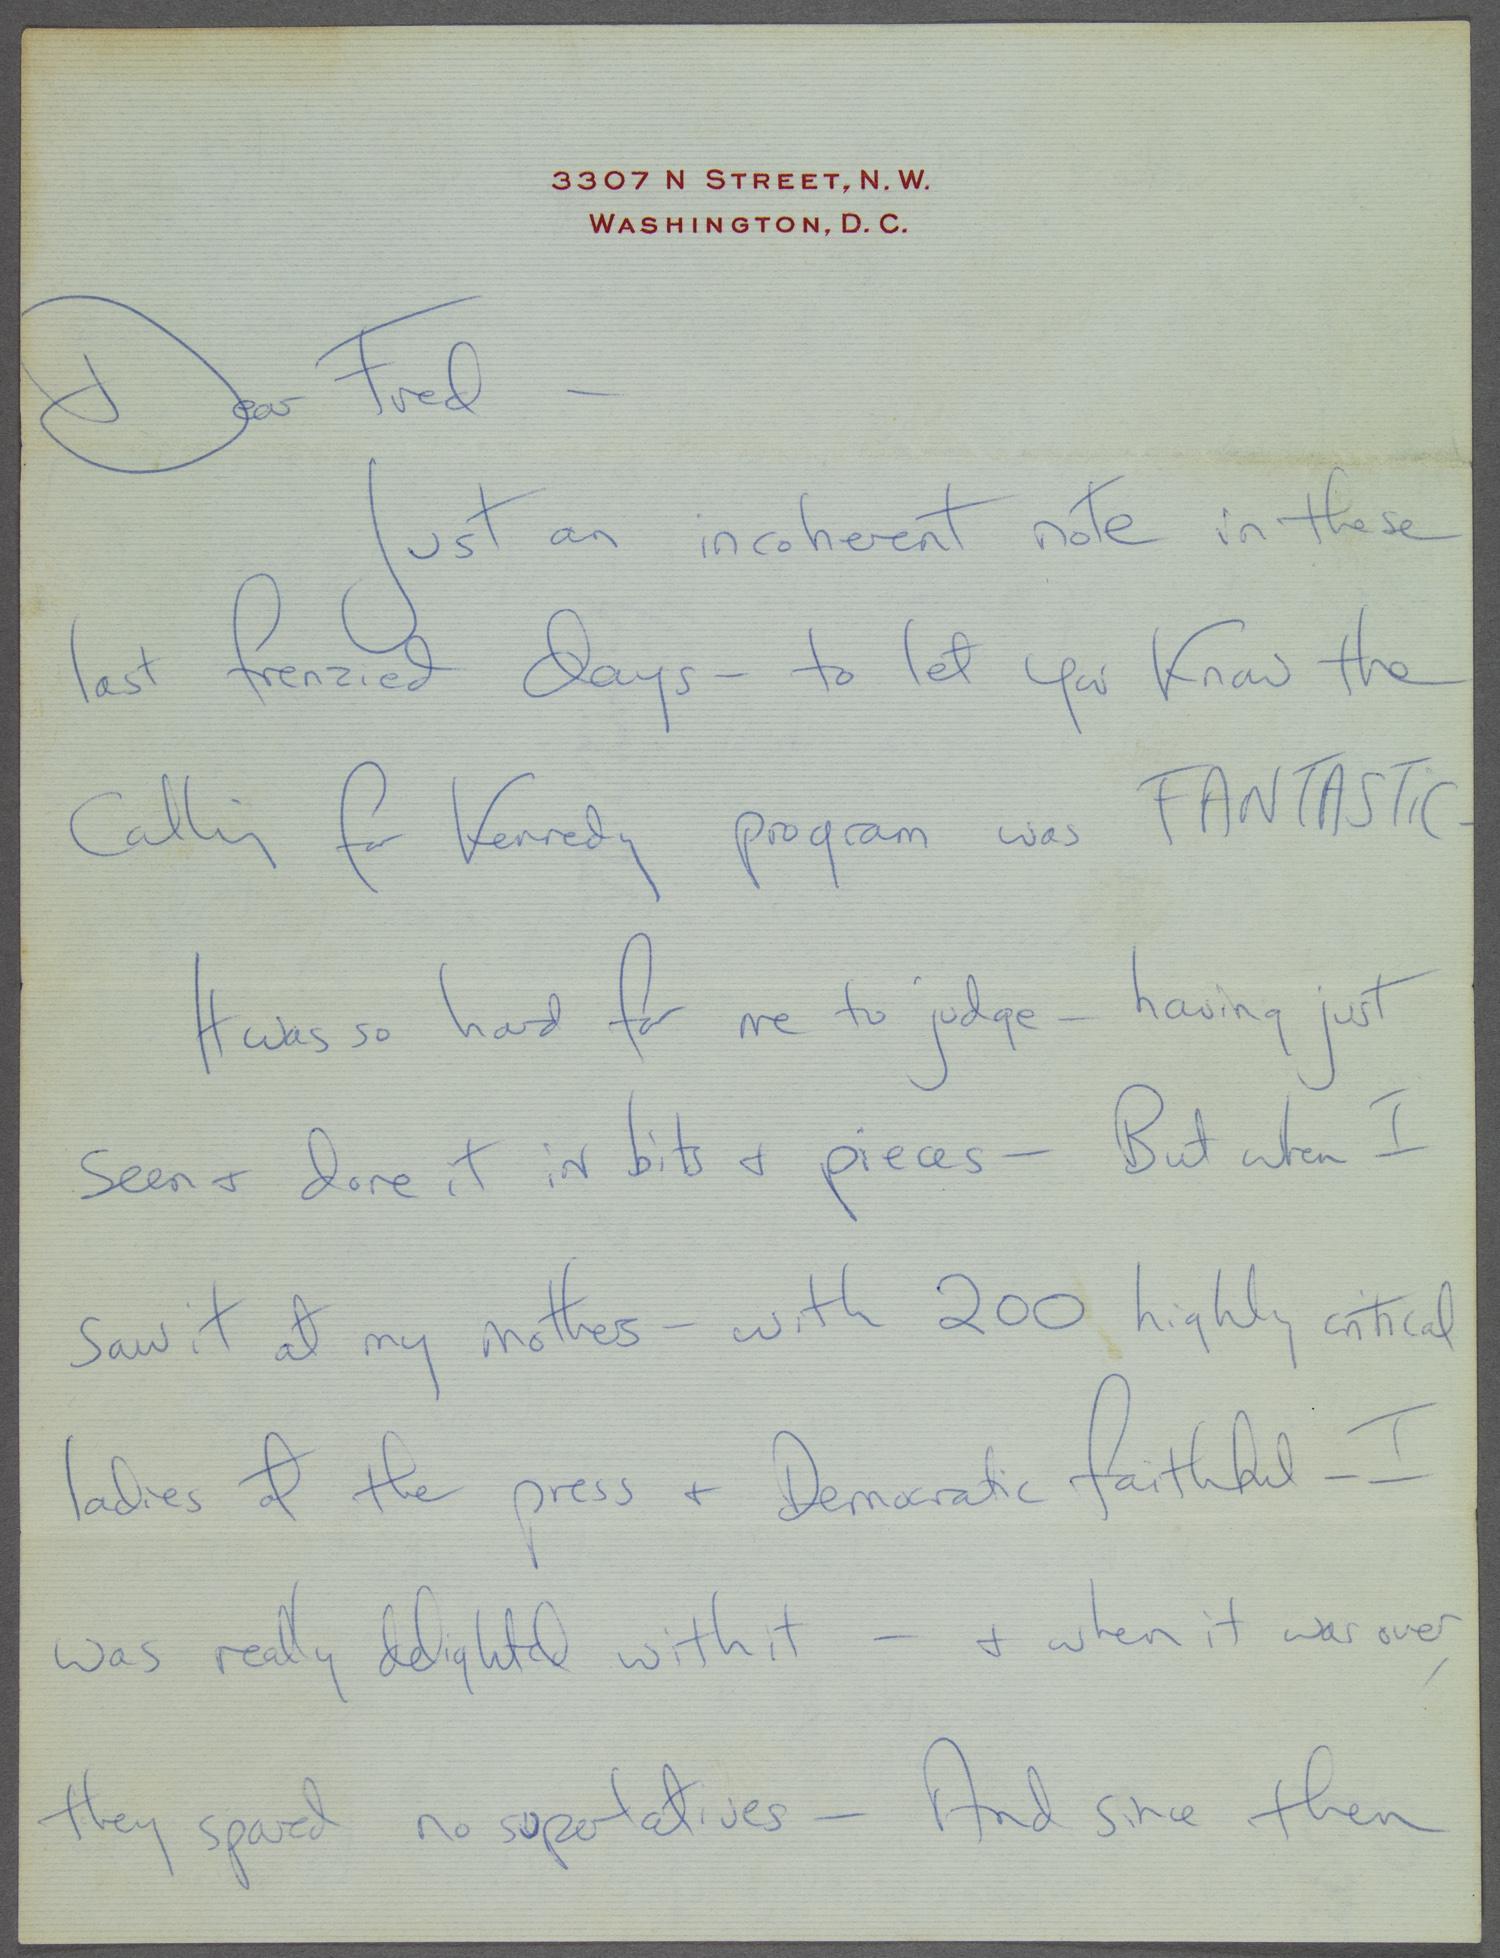 3307 N STREET, N.W.
WASHINGTON, D.C.
Dear Fred —
Just an incoherent note in these
last frenzied days — to let you know the
Calling for Kennedy program was FANTASTIC —
It was so hard for me to judge — having just
seen & done it in bits & pieces — But when I
saw it at my mothers — with 200 highly critical
ladies of the press & Democratic faithful — I
was really delighted with it — & when it was over,
they spared no superlatives — And since then